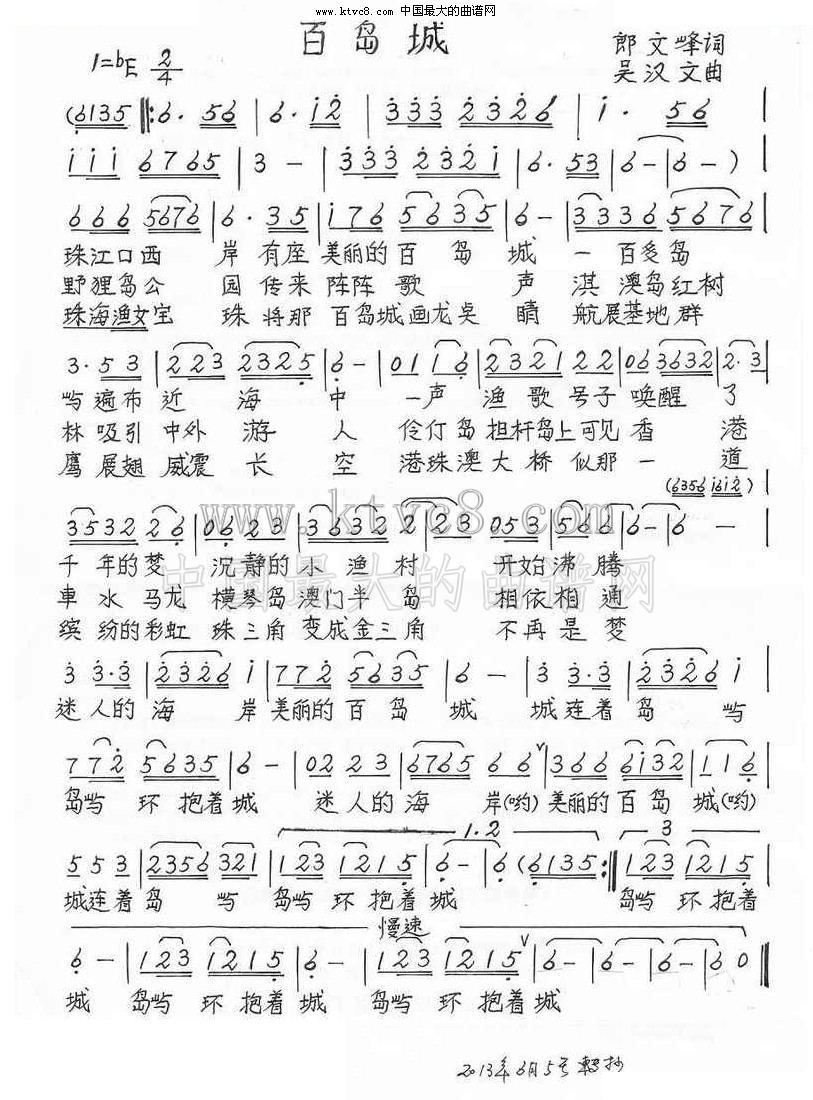 www.ktvc8.com 中国最大的曲谱网
百岛城
郎文峰词
1=bE 2/4
吴汉文曲
(6135 ‖: 6· 56 | 6· i2 | 333 2326 | i· 56 |
iii 6765 | 3 - | 333 232i | 6· 53 | 6- | 6- ) |
666 5676 | 6· 35 | i76 5635 | 6- | 3335 5676 |
珠江口西 岸 有座 美丽的 百 岛 城 一 百多岛
野狸岛公 园 传来 阵阵 歌 声 淇 澳岛红树
珠海渔女宝 珠 将那 百岛城画龙点 睛 航展基地群
3· 53 | 223 2325 | 6- | 01i6 | 2321 22 | 063632 | 2· 3 |
屿遍布 近 海 中 一声 渔 歌 号子 唤醒 了
林吸引 中外 游 人 伶仃岛 担杆岛上可见 香 港
鹰展翅 威震 长 空 港珠澳大 桥 似那 一 道
(6356 i6i2)
3532 26 | 06 23 | 3632 2 | 223 053 | 566 | 6- | 6 -
千年的梦 沉静的 小渔 村 开始沸腾
車水马龙 横琴岛澳门半 岛 相依相通
缤纷的彩虹 珠三角 变成金三角 不再是梦
www.ktvc8.com
中国最大的曲谱网
3 3·3 | 2326 i | 772 5635 | 6 - | 3 3·3 | 2326 i |
迷人的 海 岸 美丽的 百 岛 城 城连着 岛 屿
772 5635 | 6- | 022 3 | 6765 66 | 366 6i32 | 116 |
岛屿 环 抱着 城 迷人的 海 岸(哟) 美丽的百岛 城(哟)
1.2
3
553 | 2356 321 | 123 1215 | 6- | 6 (6135 :‖ 123 1215 |
城连着 岛 屿 岛屿 环 抱着 城 岛屿 环 抱着
慢速
6- | 123 1215 | 6- | 123 1215 | 6- | 6- | 6- | 60 ‖
城 岛屿 环 抱着 城 岛屿 环 抱着城
2013年6月5号轉抄